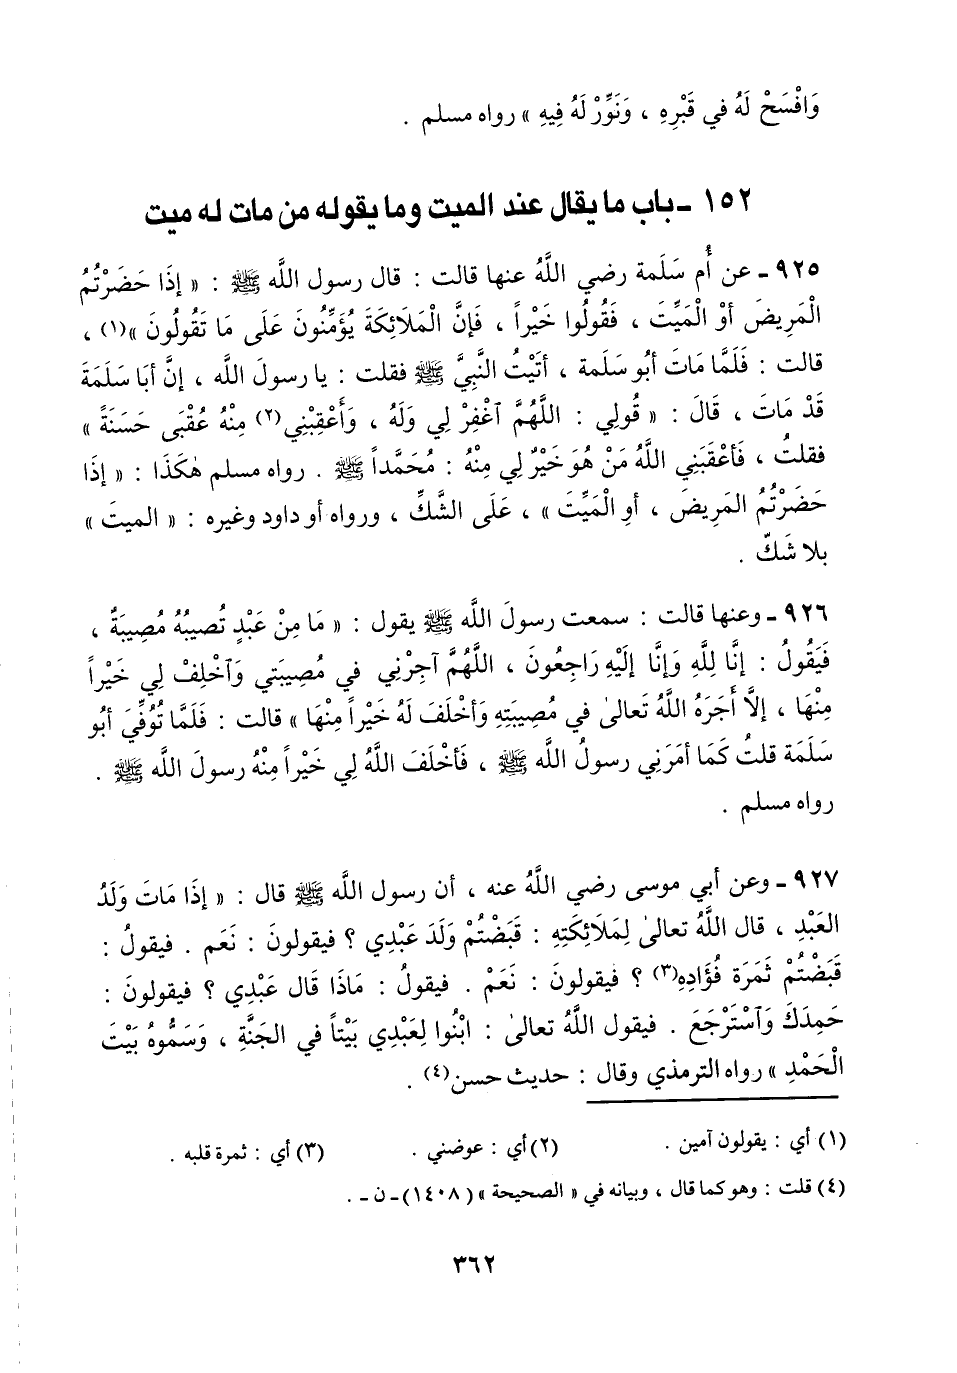 وَافْسَحْ لَهُ في قَبْرِهِ ، وَنَوِّرْ لَهُ فِيهِ » رواه مسلم .
١٥٢ ـ باب ما يقال عند الميت وما يقوله من مات له ميت
٩٢٥ ـ عن أُم سَلَمة رضي اللَّهُ عنها قالت : قال رسول اللَّه ﷺ : « إذَا حَضَرْتُمُ
الْمَرِيضَ أوْ الْمَيِّتَ ، فَقُولُوا خَيْراً ، فَإنَّ الْمَلَائِكَةَ يُؤَمِّنُونَ عَلَى مَا تَقُولُونَ »(١) ،
قالت : فَلَمَّا مَاتَ أبُو سَلَمة ، أتَيْتُ النَّبِيَّ ﷺ فقلت : يا رسولَ اللَّه ، إنَّ أبَا سَلَمَةَ
قَدْ مَاتَ ، قَالَ : « قُولِي : اللَّهُمَّ اَغْفِرْ لِي وَلَهُ ، وَأَعْقِبْنِي(٢) مِنْهُ عُقْبَى حَسَنَةً »
فقلتُ ، فَأعْقَبَنِي اللَّهُ مَنْ هُوَ خَيْرٌ لِي مِنْهُ : مُحَمَّداً ﷺ . رواه مسلم هٰكَذَا : « إذَا
حَضَرْتُمُ المَرِيضَ ، أوِ الْمَيِّتَ » ، عَلَى الشَّكِّ ، ورواه أبو داود وغيره : « الميتَ »
بلا شَكّ .
٩٢٦ ـ وعنها قالت : سمعت رسولَ اللَّه ﷺ يقول : « مَا مِنْ عَبْدٍ تُصيبُهُ مُصِيبَةٌ ،
فَيَقُولُ : إنَّا لِلَّهِ وَإنَّا إلَيْهِ رَاجِعُونَ ، اللَّهُمَّ آجِرْنِي في مُصِيبَتي وَاَخْلِفْ لِي خَيْراً
مِنْهَا ، إلَّا أَجَرَهُ اللَّهُ تَعالىٰ في مُصِيبَتِهِ وَأخْلَفَ لَهُ خَيْراً مِنْهَا » قالت : فَلَمَّا تُوُفِّيَ أبُو
سَلَمَة قلتُ كَمَا أمَرَنِي رسولُ اللَّه ﷺ ، فَأخْلَفَ اللَّهُ لِي خَيْراً مِنْهُ رسولَ اللَّه ﷺ .
رواه مسلم .
٩٢٧ ـ وعن أبي موسى رضي اللَّهُ عنه ، أن رسول اللَّه ﷺ قال : « إذَا مَاتَ وَلَدُ
العَبْدِ ، قال اللَّهُ تعالىٰ لِمَلَائِكَتِهِ : قَبَضْتُمْ وَلَدَ عَبْدِي ؟ فيقولونَ : نَعَم . فيقولُ :
قَبَضْتُمْ ثَمَرَة فُؤَادِهِ(٣) ؟ فيقولونَ : نَعَمْ . فيقولُ : مَاذَا قَال عَبْدِي ؟ فيقولونَ :
حَمِدَكَ وَاَسْتَرْجَعَ . فيقول اللَّهُ تعالىٰ : ابْنُوا لِعَبْدِي بَيْتاً في الجَنَّةِ ، وَسَمُّوهُ بَيْتَ
الْحَمْدِ » رواه الترمذي وقال : حديث حسن(٤) .
(١) أي : يقولون آمين . (٢) أي : عوضني . (٣) أي : ثمرة قلبه .
(٤) قلت : وهو كما قال ، وبيانه في « الصحيحة » (١٤٠٨) ـ ن ـ .
٣٦٢